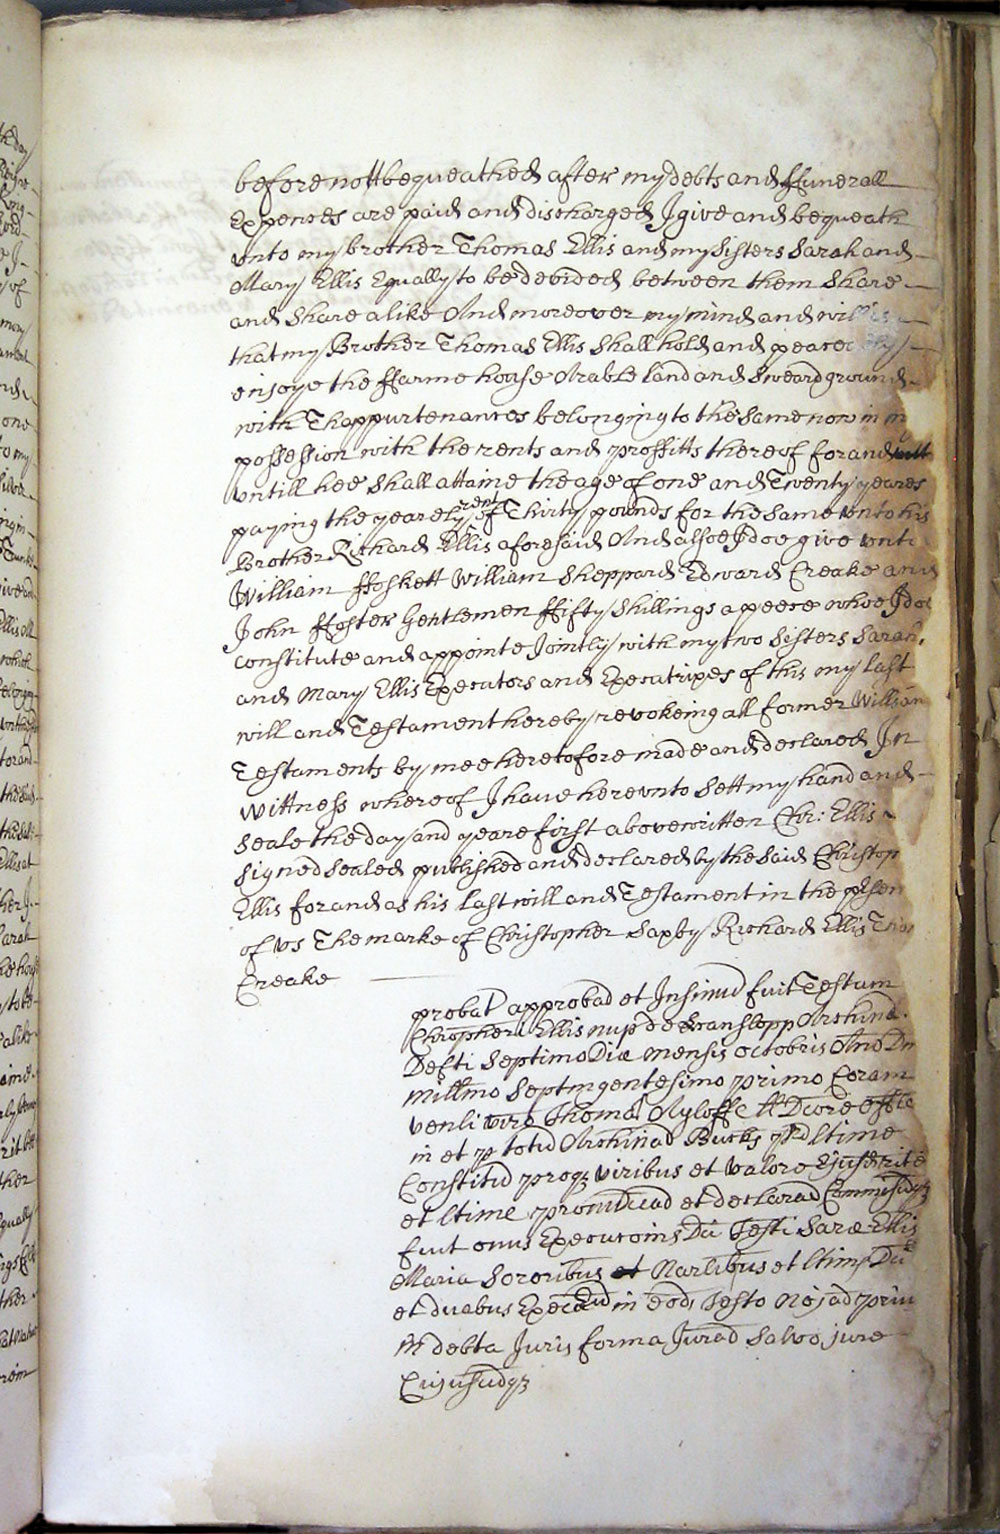 before nott bequeathed after my debts and ffunerall
Expences are paid and discharged I give and bequeath
vnto my brother Thomas Ellis and my Sisters Sarah and
Mary Ellis Equally to be devided between them Share
and Share alike And moreover my mind and will is
that my Brother Thomas Ellis Shall hold and
enjoye the ffarme house Arable Land and Sweard ground
with Thappurtenances belonging to the Same now in my
possession with the rents and proffitts thereof for and
vntill hee Shall attaine the age of one and Twenty yeares
paying the yearely rent of Thirty pounds for the Same vnto his
Brother Richard Ellis aforesaid And alsoe I doe give vnto
William ffoskett William Sheppard Edward Creake and
John ffoster Gentlemen ffifty Shillings apeece whoe I doe
constitute and appointe Jointly with my two Sisters Sarah
and Mary Ellis Executors and Executrixes of this my last
will and Testament hereby revokeing all former Wills an
Testaments by mee heretofore made and declared In
Wittness whereof I have herevnto Sett my hand and
Seale the day and yeare first above written Chr: Ellis
Signed Sealed published and declared by the Said Christop
Ellis for and as his last will and Testament in the psen
of vs The marke of Christopher Saxby Richard Ellis
Creake
probat approbad et Insinud fuit Testum
Chropheri Ellis nup de Hanslopp Archind
Defti Septimo Die mensis Octobris Ano Dn
millmo Septingentesimo primo Coram
venli viro Thoma Ayloffe LL Dcore
in et p totu Archinad Bucks pd ltime
Constitud proqz viribus et valore Ejusd rite
et ltime pronunciad et declarad Commissuqz
fuit onus Execucoins Di Testi Saræ Ellis
Maria Sororibus et Narlibus et ltims Di
et duabus Execu in eod Testo Noiad priu
in debta Juris forma Jurad Salvo jure
Cujuscudqz